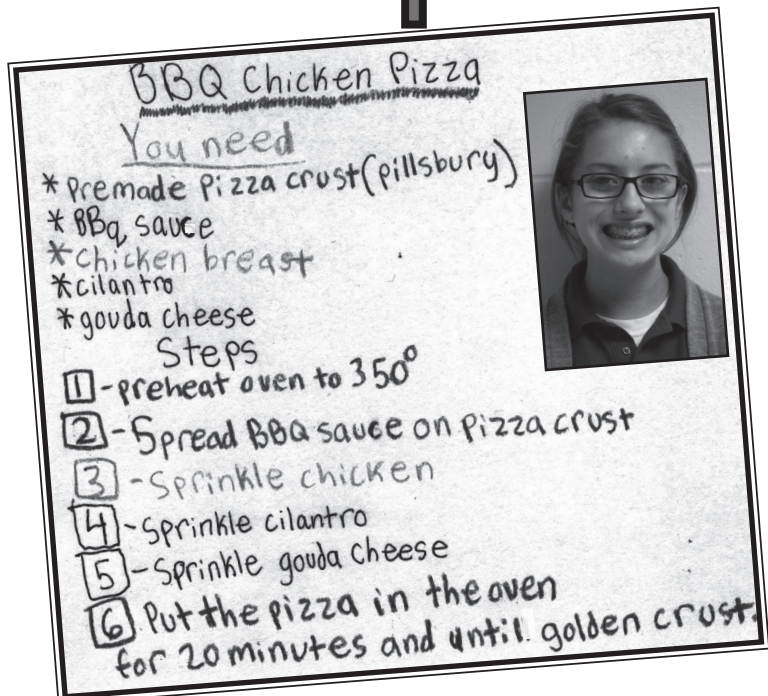 BBQ Chicken Pizza
You need
* Premade Pizza crust(pillsbury)
* BBq sauce
* Chicken breast
* cilantro
* gouda cheese
Steps
1 - preheat oven to 350°
2 - Spread BBQ sauce on pizza crust
3 - Sprinkle chicken
4 - Sprinkle cilantro
5 - Sprinkle gouda cheese
6 Put the pizza in the oven
for 20 minutes and until golden crust.